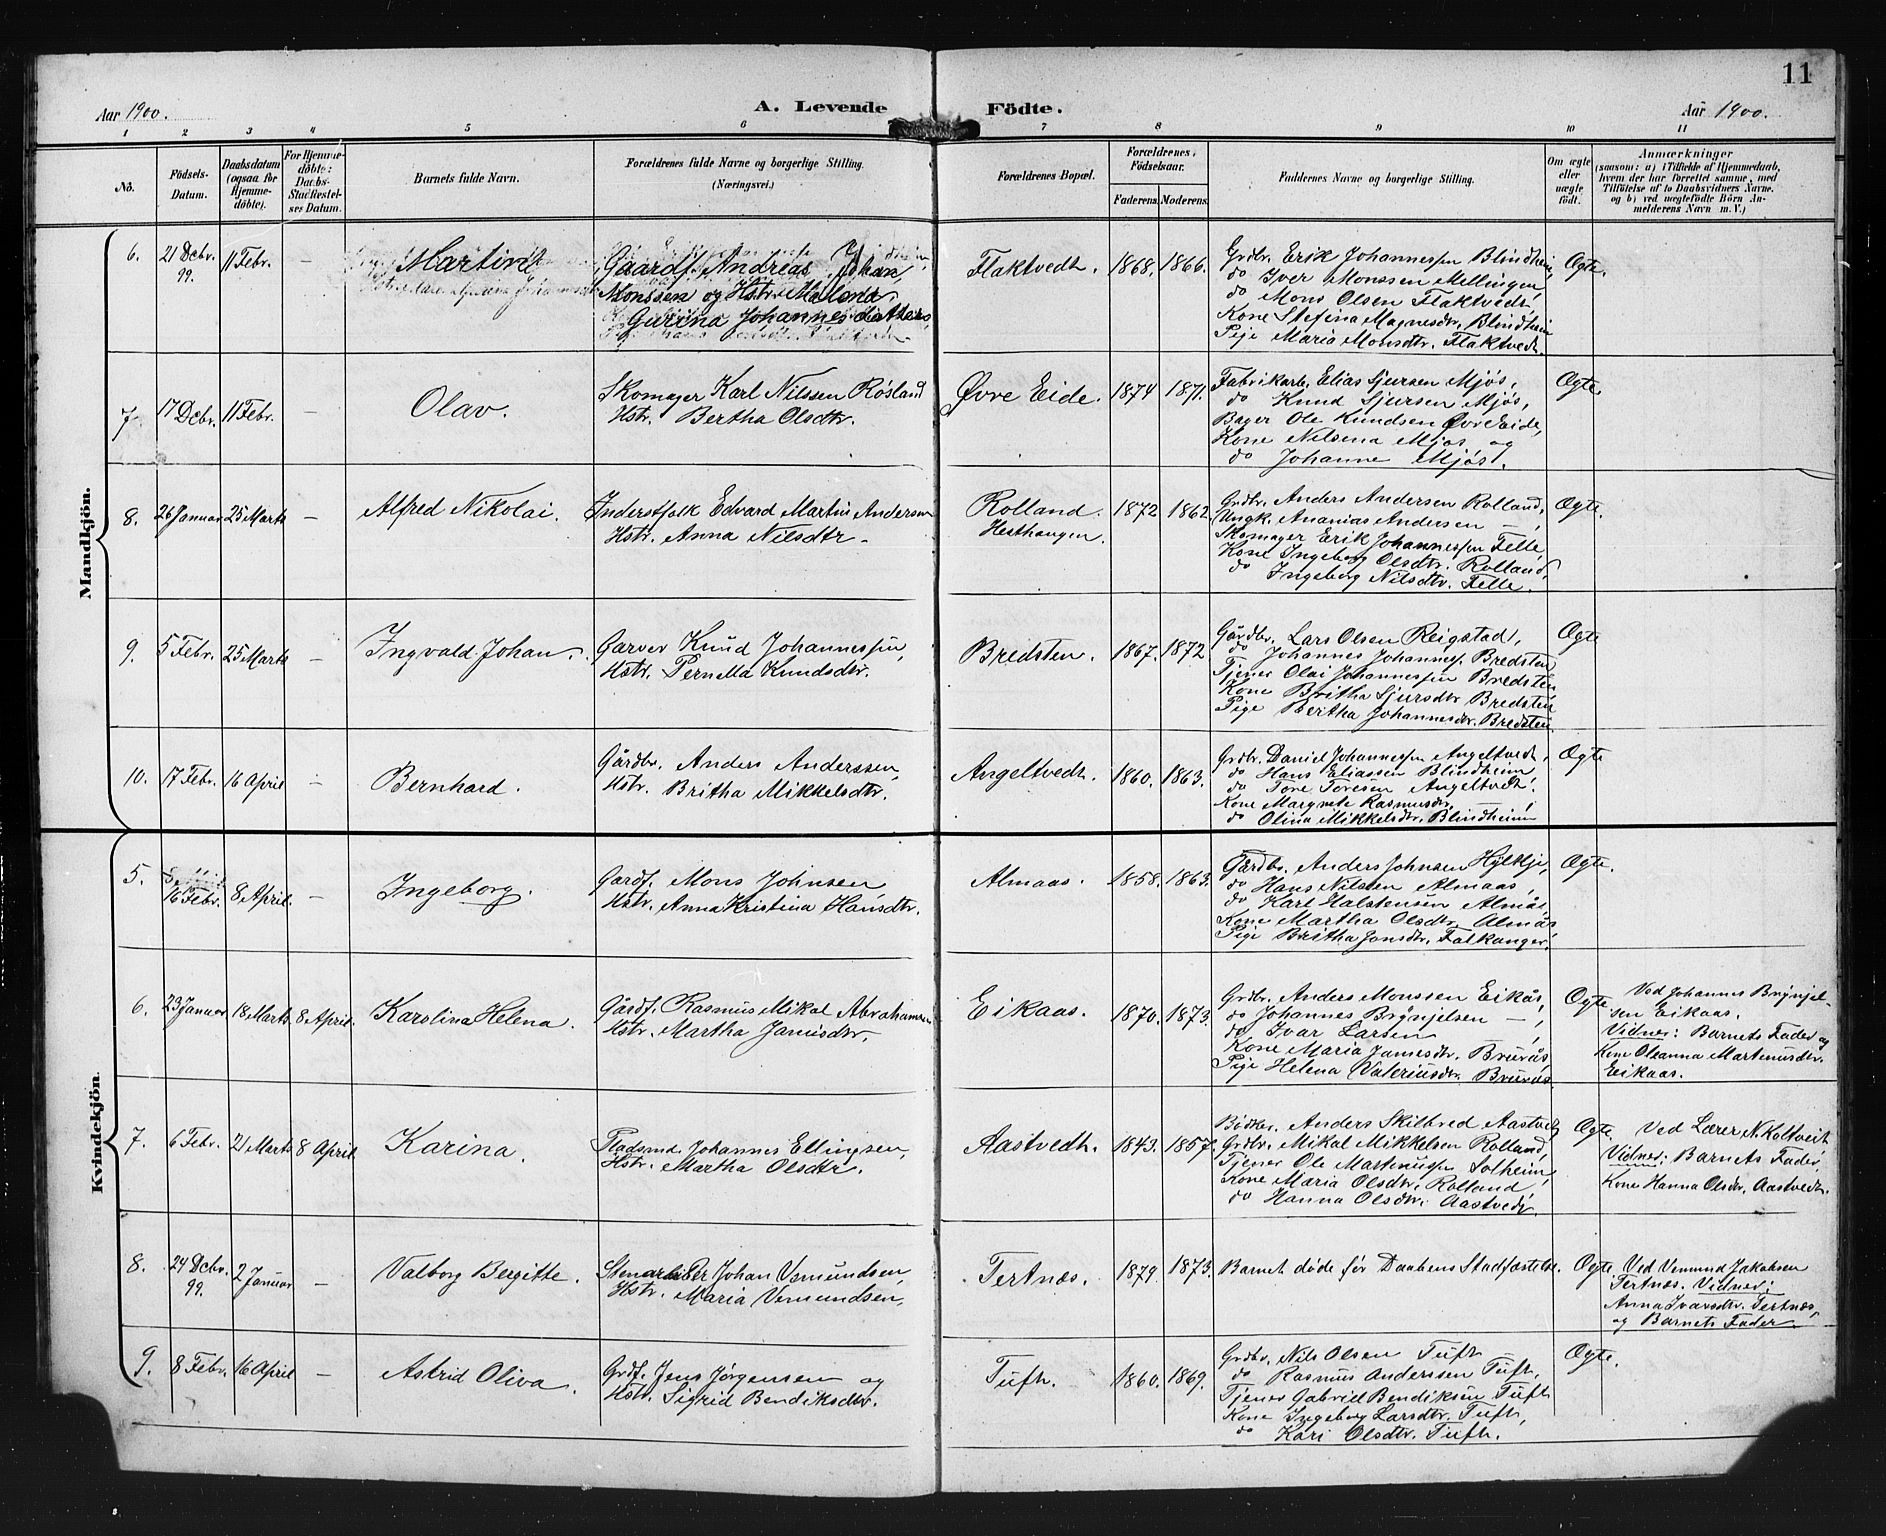 11
Aar 1900.
A. Levende Födte.
Aar 1900.
1 2 3 4 5 6 7 8 9 10 11
No.
Födsels-Datum.
Daabsdatum (ogsaa for Hjemmedöbte).
For Hjemmedöbte: Daabs-Stadfæstelses Datum.
Barnets fulde Navn.
Forældrenes fulde Navne og borgerlige Stilling. (Næringsvei.)
Forældrenes Bopæl.
Forældrenes Födselsaar.
Faderens. Moderens.
Faddernes Navne og borgerlige Stilling.
Om ægte eller uægte födt.
Anmærkninger
(saasom: a) i Tilfælde af Hjemmedaab, hvem der har forrettet samme, med Tilföielse af to Daabsvidners Navne. og b) ved uægtefödte Börn Anmelderens Navn m. V.)
Mandkjön.
6. 21 Dcbr. 99. 11 Febr. — Martin
Gaardf. Andreas Johan
Monssen og Hstr. Malena
Gurina Johannesdatter,
Flaktvedt. 1868. 1866.
Grdbr. Erik Johannessen Blindheim,
do Iver Monssen Mellingen,
do Mons Olsen Flaktvedt,
Kone Stefina Magnesdtr. Blindheim
Pige Maria Monsdtr. Flaktvedt.
Ægte.
7. 17 Dcbr. 11 Febr. — Olav.
Skomager Karl Nilssen Røsland
Hstr. Bertha Olsdtr.
Øvre Eide. 1874 1871.
Fabrikarb. Elias Sjursen Mjøs,
do Knud Sjursen Mjøs,
Bager Ole Knudsen Øvre Eide,
Kone Nilsena Mjøs og
do Johanne Mjøs.
Ægte.
8. 26 Januar 25 Marts — Alfred Nikolai.
Inderstfolk Edvard Martin Andersen
Hstr. Anna Nilsdtr.
Rolland
Hesthaugen. 1872 1862.
Grdbr. Anders Andersen Rolland,
Ungk. Ananias Andersen —,
Skomager Erik Johannessen Telle,
Kone Ingeborg Olsdtr. Rolland,
do Ingeborg Nilsdtr. Telle.
Ægte.
9. 5 Febr. 25 Marts — Ingvald Johan.
Garver Knud Johannessen,
Hstr. Pernella Knudsdtr.
Bredsten. 1867. 1872
Gårdbr. Lars Olsen Reigstad,
do Johannes Johanness. Bredsten
Tjener Olai Johannessen Bredsten
Kone Britha Sjursdtr Bredsten
Pige Bertha Johannesdtr. Bredsten
Ægte
10. 17 Febr. 16 April — Bernhard.
Gårdbr. Anders Anderssen,
Hstr. Britha Mikkelsdtr.
Angeltvedt. 1860. 1863.
Grdbr. Daniel Johannessen Angeltvedt,
do Hans Eliassen Blindheim,
do Tore Toresen Angeltvedt.
Kone Margrete Rasmusdtr. —,
do Olina Mikkelsdtr. Blindheim
Ægte
Kvindekjön.
5. 16 Febr. 8 April. — Ingeborg.
Gardf. Mons Johnsen
Hstr. Anna Kristina Hansdtr.
Almaas. 1858. 1863.
Gardbr. Anders Johnsen Hylkje,
do Hans Nilssen Almaas,
do Karl Halstensen Almås
Kone Martha Olsdtr. Almås
Pige Britha Jonsdtr. Falkanger.
Ægte.
6. 23 Januar 18 Marts 8 April. Karolina Helena.
Gårdf. Rasmus Mikal Abrahamsen
Hstr. Martha Jamisdtr.
Eikaas. 1870. 1873.
Grdbr. Anders Monssen Eikås,
do Johannes Brynjelsen —,
do Ivar Larsen
Kone Maria Jamesdtr. Brurås,
Pige Helena Valeriusdtr. Brurås.
Ægte.
Ved Johannes Brynjelsen Eikaas.
Vidner: Barnets Fader og
Kone Oleanna Martinusdtr.
Eikaas.
7. 6 Febr. 21 Marts 8 April Karina.
Pladsmd. Johannes Ellingsen,
Hstr. Martha Olsdtr.
Aastvedt. 1843. 1857.
Bødker. Anders Skilbred Aastvedt
Grdbr. Mikal Mikkelsen Rolland,
Tjener Ole Martinussen Solheim,
Kone Maria Olsdtr. Rolland
do Hanna Olsdtr. Aastvedt.
Ægte.
Ved Lærer N. Koltveit
Vidner: Barnets Fader,
Kone Hanna Olsdtr. Aastvedt.
8. 24 Dcbr. 99. 2 Januar — Valborg Bergitte.
Stenarbeider Johan Vemundsen,
Hstr. Maria Vemundsen,
Tertnæs. 1879. 1873.
Barnet døde før Daabens Stadfæstelse.
Ægte.
Ved Vemund Jakobsen
Tertnæs. Vidner:
Anna Ivarsdtr. Tertnæs,
og Barnets Fader.
9. 8 Febr. 16 April — Astrid Oliva.
Grdf. Jens Jørgensen og
Hstr. Sigrid Bendiksdtr.
Tuft. 1860. 1869.
Grdbr. Nils Olsen Tuft
do Rasmus Anderssen Tuft,
Tjener Gabriel Bendiksen Tuft
Kone Ingeborg Larsdtr. Tuft,
do Kari Olsdtr. Tuft.
Ægte.